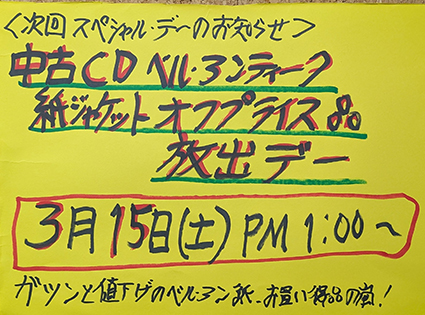 <次回スペシャル・デーのお知らせ>
中古CDベル・アンティーク
紙ジャケットオフプライス品
放出デー
3月15日(土)PM1:00〜
ガツンと値下げのベル・アン紙・お買い得品の嵐!